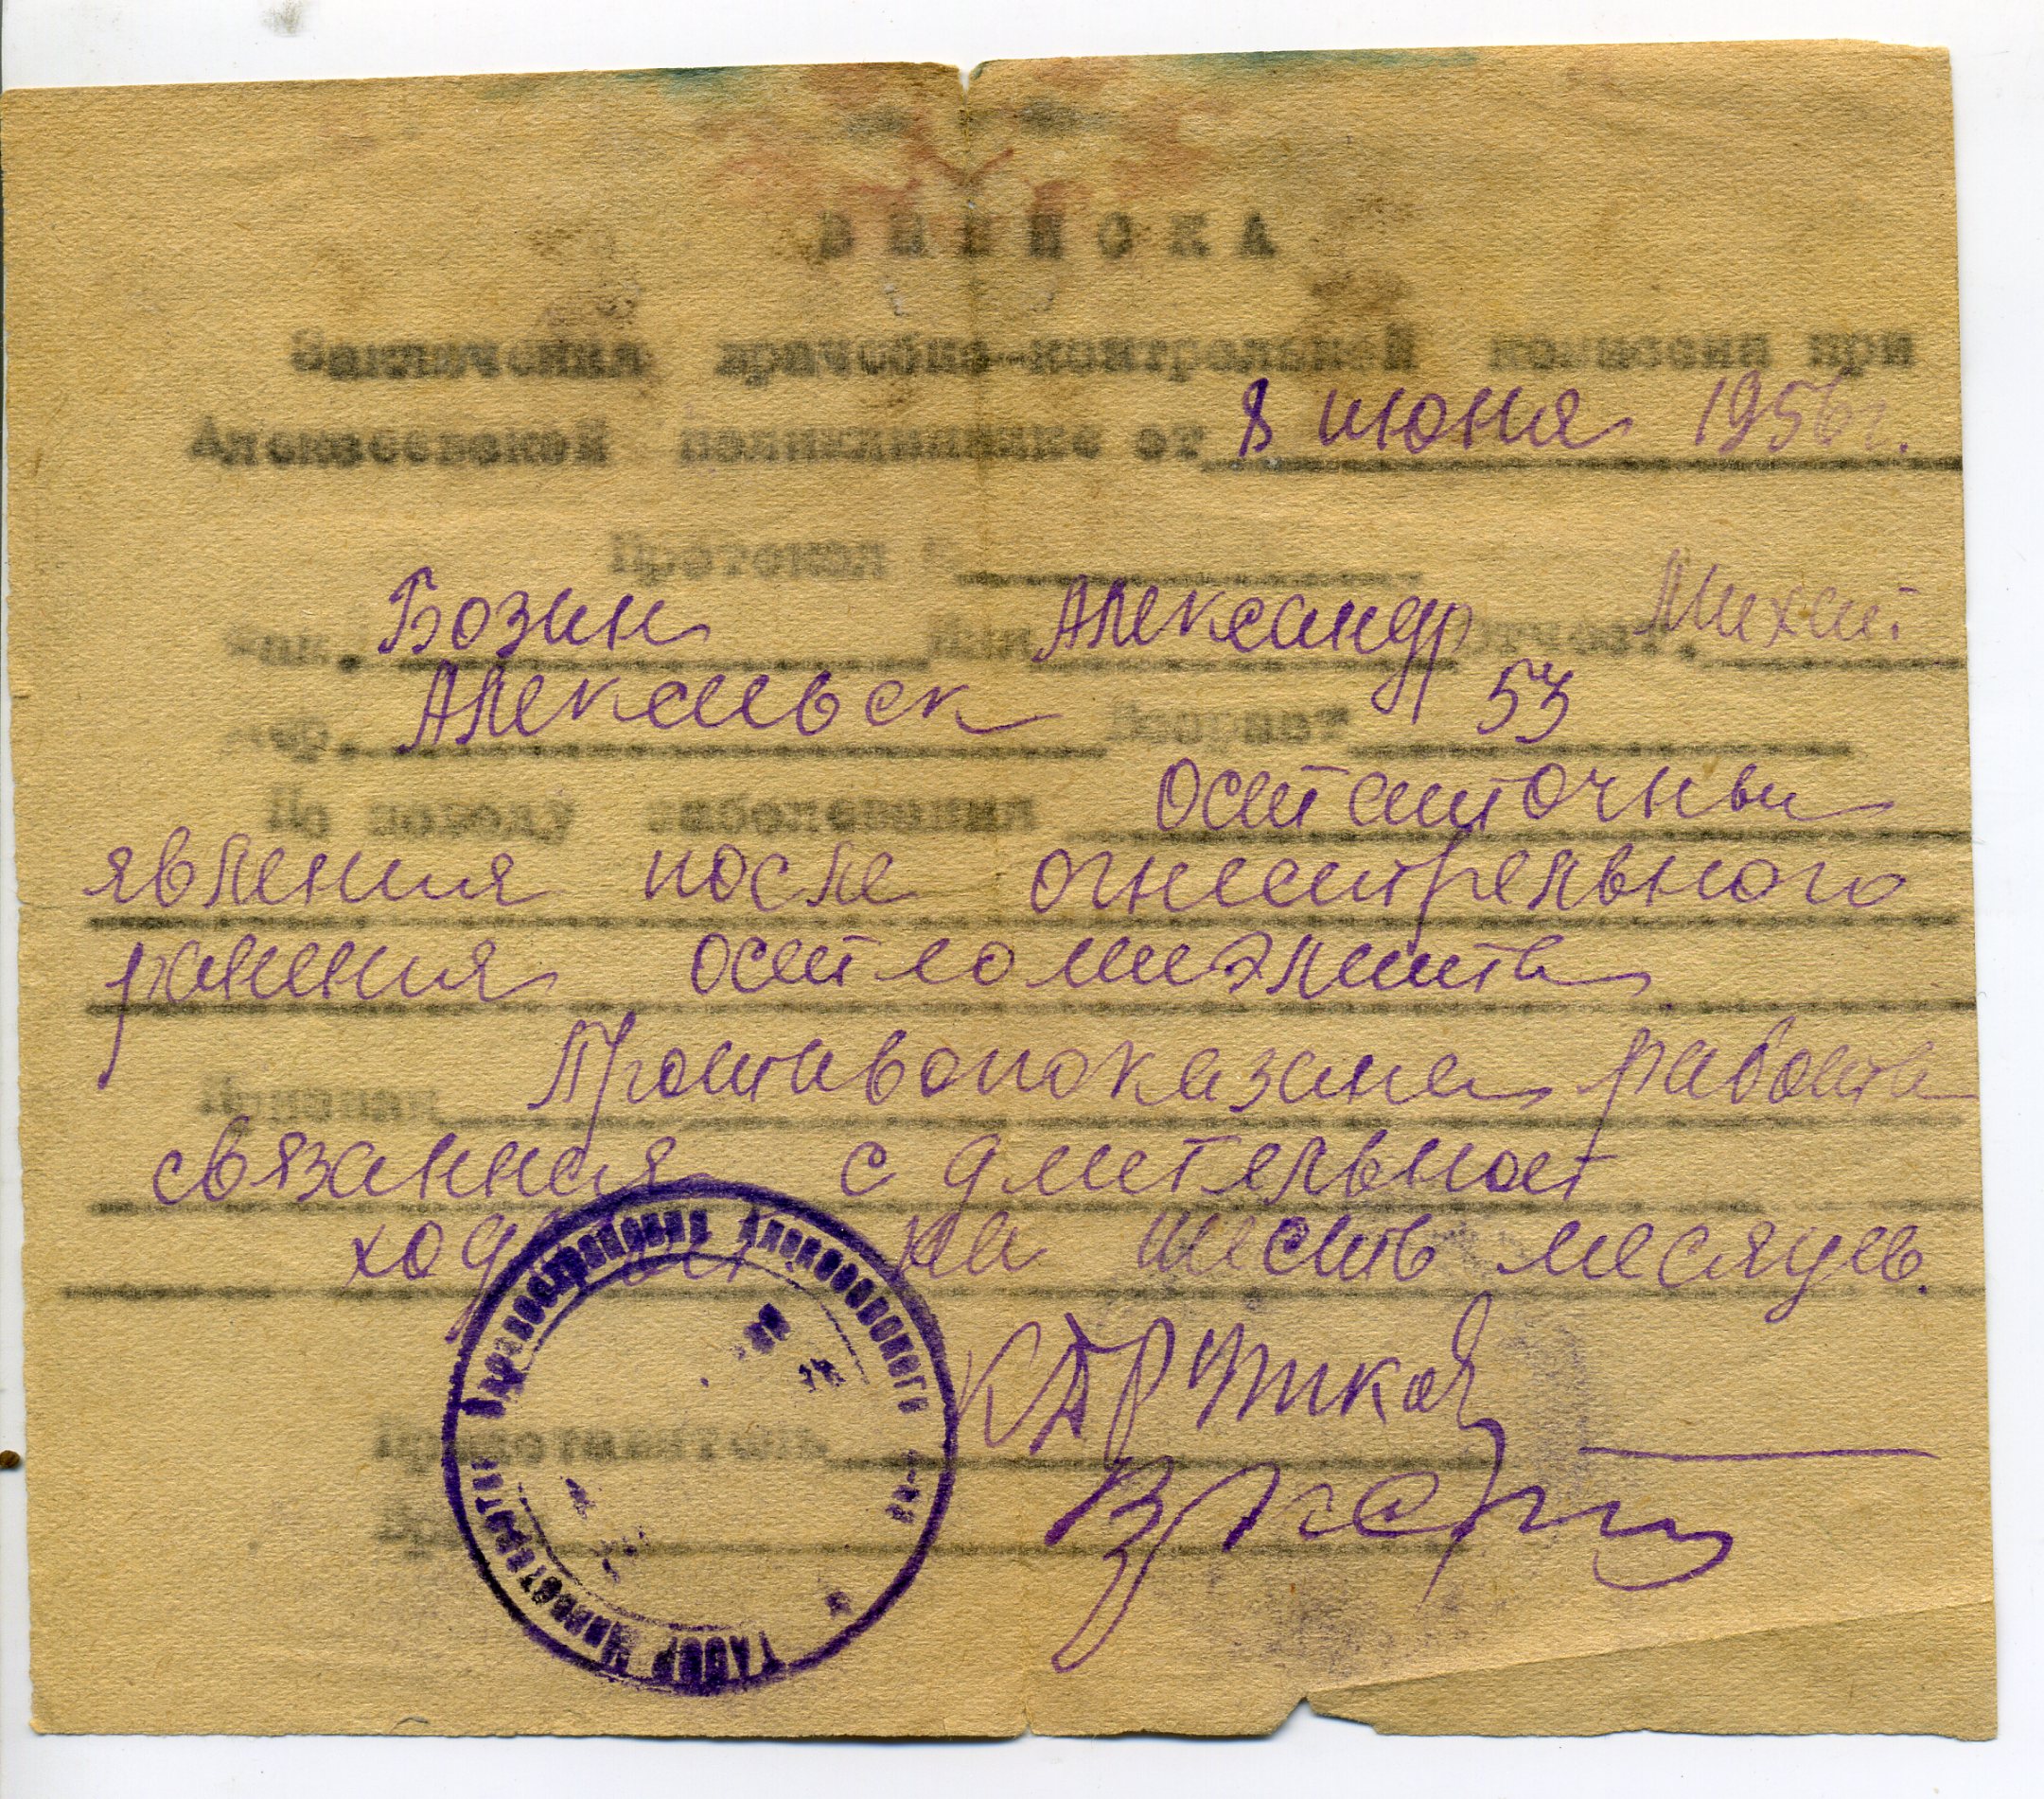 ВЫПИСКА
Заключения врачебно-контрольной комиссии при
Алексеевской поликлинике от 8 июня 1956 г.
Протокол
Фам. Бозин Имя Александр Отчест. Михаил
Адр. Алексеевск Возраст 53
По поводу заболевания остаточные
явления после огнестрельного
ранения остеомиэлита
Диагноз Противопоказана работа
связанная с длительной
ходьбой на шесть месяцев.
Председатель
ТАССР Министерство Здравоохранения Алексеевского р-на